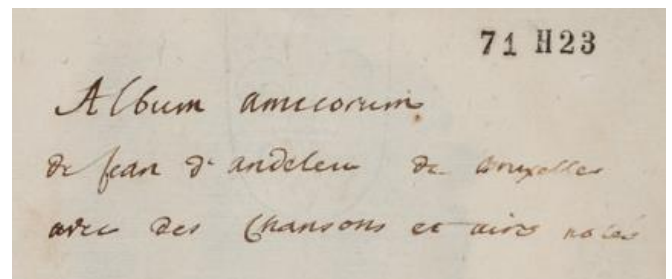 71 H23
Album amicorum
de Jean d'andeleu de Bruxelles
avec des Chansons et airs notés